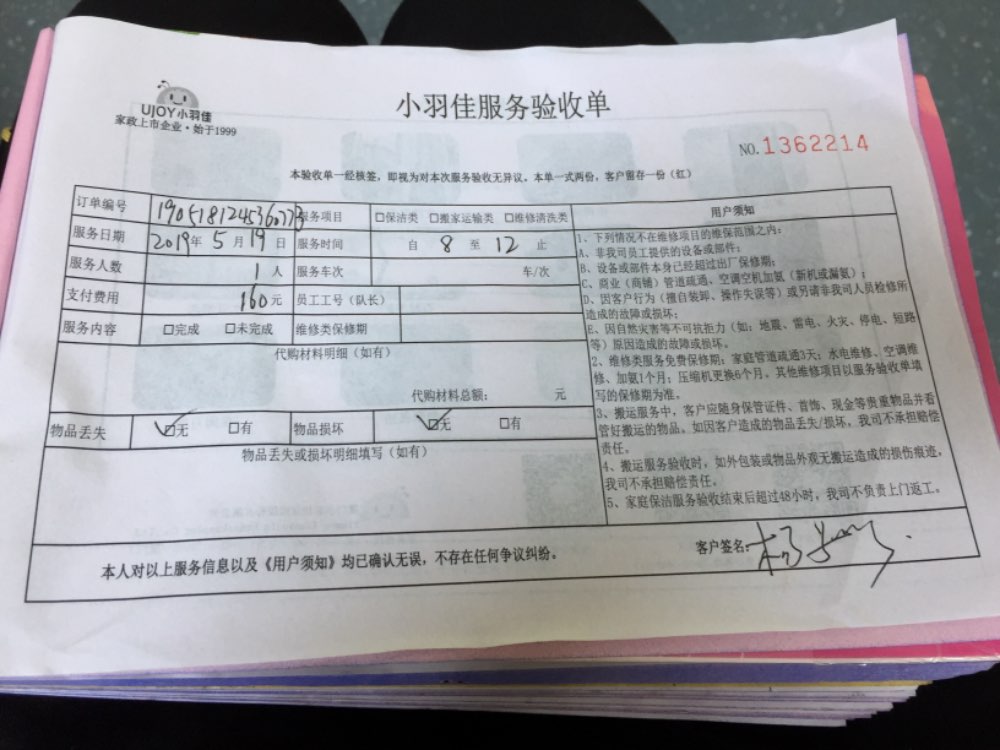 UJOY小羽佳
家政上市企业·始于1999
小羽佳服务验收单
NO.1362214
本验收单一经核签，即视为对本次服务验收无异议。本单一式两份，客户留存一份（红）
订单编号 1905181245360773 服务项目 □保洁类 □搬家运输类 □维修清洗类
服务日期 2019年 5月 19日 服务时间 自 8 至 12 止
服务人数 1 人 服务车次 车/次
支付费用 160元 员工工号（队长）
服务内容 □完成 □未完成 维修类保修期
代购材料明细（如有）
代购材料总额： 元
物品丢失 ☑无 □有 物品损坏 ☑无 □有
物品丢失或损坏明细填写（如有）
用户须知
1、下列情况不在维修项目的维保范围之内：
A、非我司员工提供的设备或部件；
B、设备或部件本身已经超过出厂保修期；
C、商业（商铺）管道疏通、空调空机加氨（新机或漏氨）；
D、因客户行为（擅自装卸、操作失误等）或另请非我司人员检修所
造成的故障或损坏；
E、因自然灾害等不可抗拒力（如：地震、雷电、火灾、停电、短路
等）原因造成的故障或损坏。
2、维修类服务免费保修期：家庭管道疏通3天；水电维修、空调维
修、加氨1个月；压缩机更换6个月。其他维修项目以服务验收单填
写的保修期为准。
3、搬运服务中，客户应随身保管证件、首饰、现金等贵重物品并看
管好搬运的物品。如因客户造成的物品丢失/损坏，我司不承担赔偿
责任。
4、搬运服务验收时，如外包装或物品外观无搬运造成的损伤痕迹，
我司不承担赔偿责任。
5、家庭保洁服务验收结束后超过48小时，我司不负责上门返工。
本人对以上服务信息以及《用户须知》均已确认无误，不存在任何争议纠纷。
客户签名：